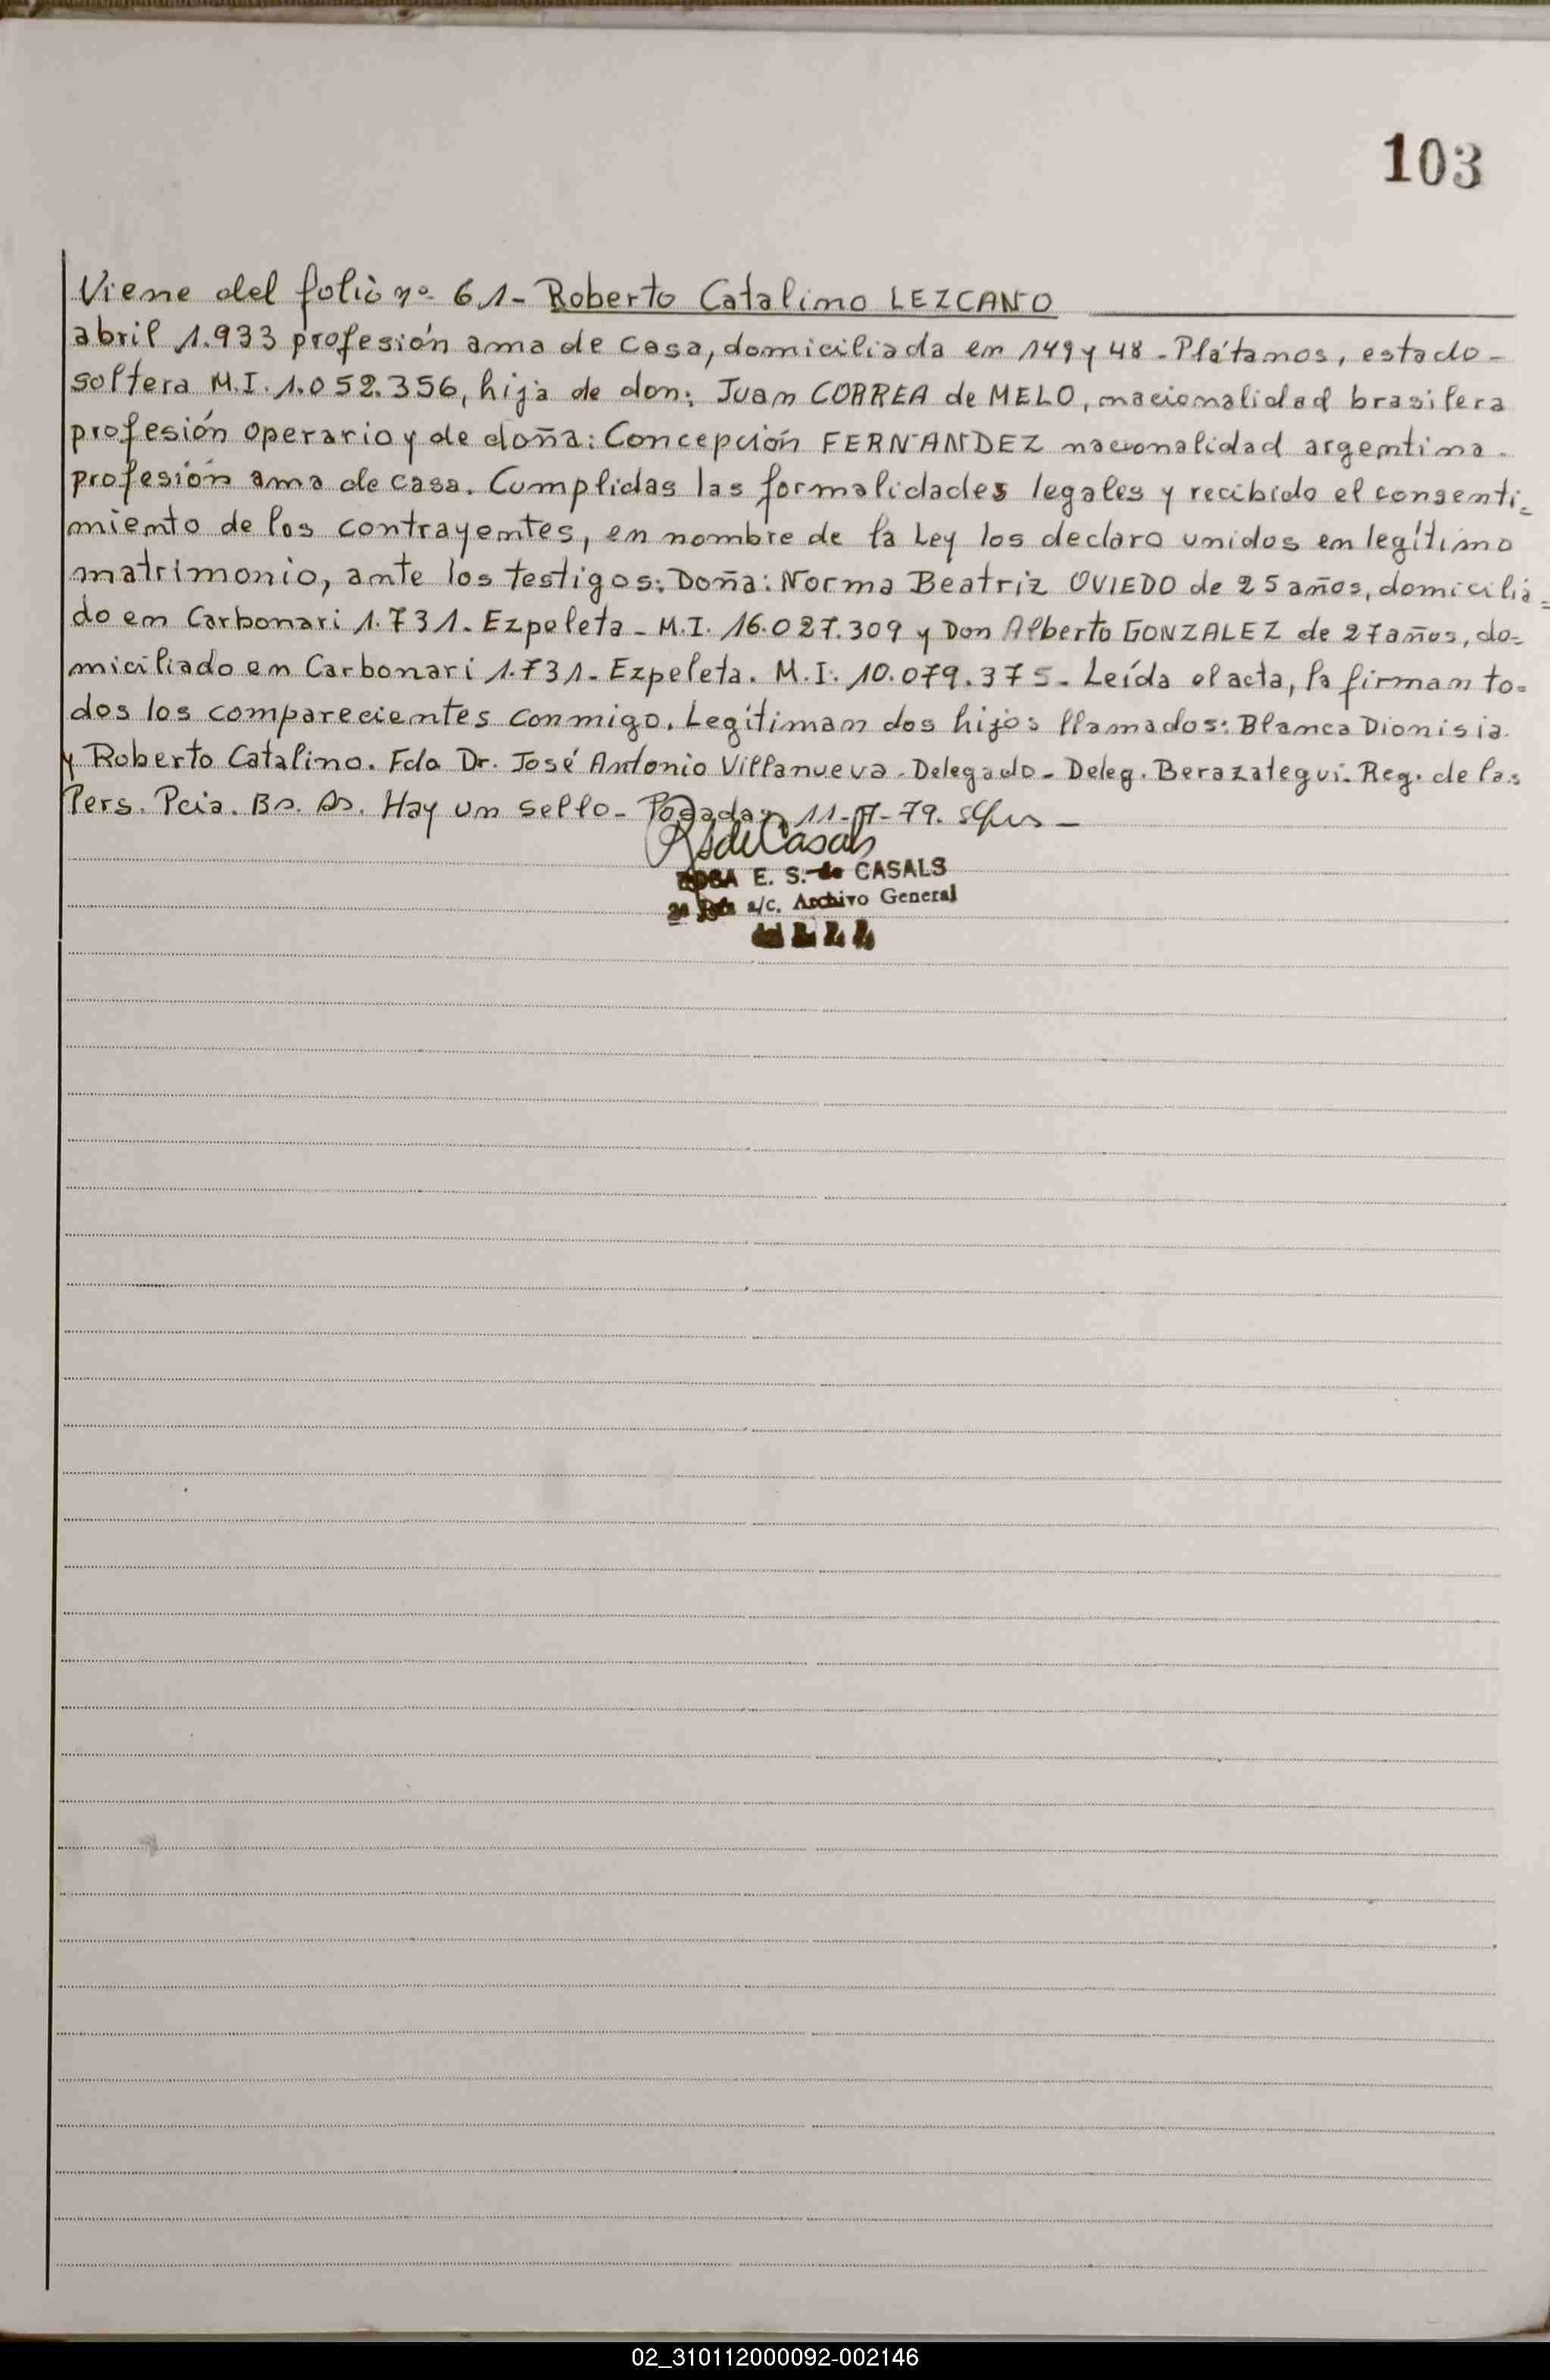 103
Viene del folio nº 61- Roberto Catalino LEZCANO
abril 1.933 profesión ama de casa, domiciliada en 149 y 48 - Plátanos, estado -
soltera M.I. 1.052.356, hija de don: Juan CORREA de MELO, nacionalidad brasilera
profesión operario y de doña: Concepción FERNANDEZ nacionalidad argentina -
profesión ama de casa. Cumplidas las formalidades legales y recibido el consenti=
miento de los contrayentes, en nombre de la Ley los declaro unidos en legítimo
matrimonio, ante los testigos: Doña: Norma Beatriz OVIEDO de 25 años, domicilia=
do en Carbonari 1.731. Ezpeleta - M.I. 16.027.309 y Don Alberto GONZALEZ de 27 años, do=
miciliado en Carbonari 1.731. Ezpeleta. M.I. 10.079.375 - Leída el acta, la firman to=
dos los comparecientes conmigo. Legitiman dos hijos llamados: Blanca Dionisia
y Roberto Catalino. Fdo Dr. José Antonio Villanueva - Delegado - Deleg. Berazategui. Reg. de las
Pers. Pcia. Bs. As. Hay un sello - Posadas, 11- -79.
RSdeCasals
ROSA E. S. de CASALS
a/c. Archivo General
02_310112000092-002146